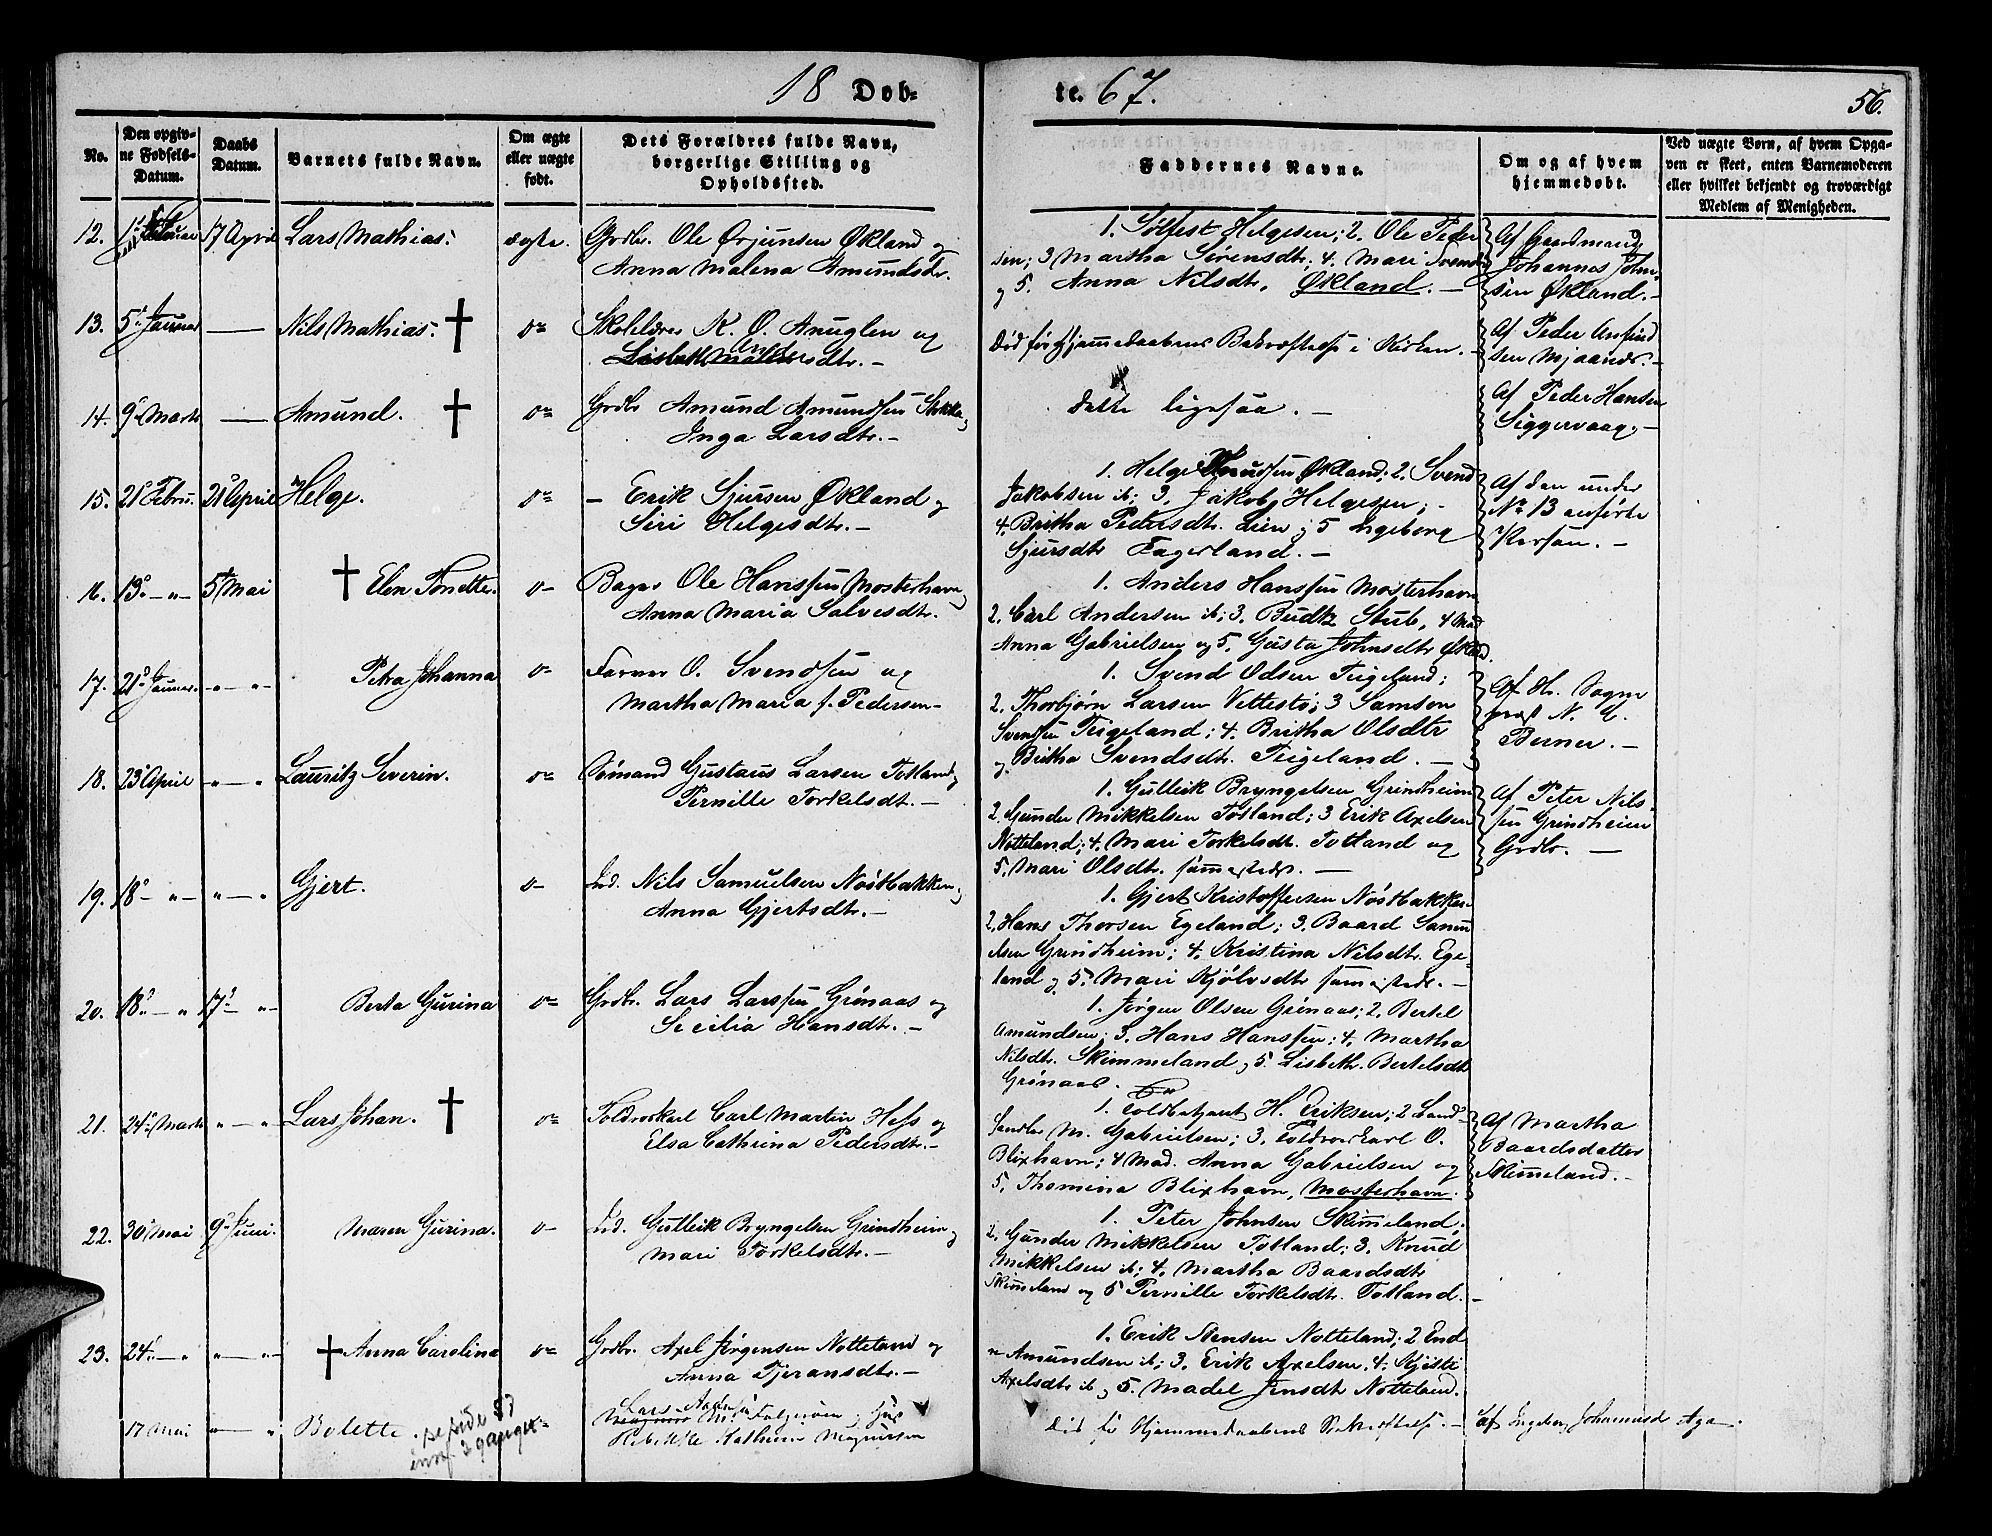 18 Døb-
te. 67.
56.
No.
Den opgiv-
ne Fødsels-
Datum.
Daabs
Datum.
Barnets fulde Navn.
Om ægte
eller uægte
født.
Dets Forældres fulde Navn,
borgerlige Stilling og
Opholdssted.
Faddernes Navne.
Om og af hvem
hjemmedøbt.
Ved uægte Børn, af hvem Opga-
ven er skeet, enten Barnemoderen
eller hvilket bekjendt og troværdigt
Medlem af Menigheden.
12. 17 April Lars Mathias. ægte. Grdbr. Ole Ørjansen Økland og
Anna Malena Amundsdr.
1. Sølfest Helgesen; 2. Ole Peder
sen; 3 Martha Sørensdtr; 4. Mari Svends
og 5. Anna Nilsdtr, Økland. –
Af Gaardmand
Johannes John-
sen Økland. –
13. 5 Januar — Nils Mathias. † do Skolelærer K. O. Anuglen og
dtr. –
Død før Hjemmedaabens Bekræftelse i Kirken. –
Af Peder Amund
sen Mjaanes. –
14. 9 Marts — Amund. † do Grdbr Amund Amundsen Stokke
Inga Larsdtr. –
dette ligesaa. –
Af Peder Hansen
Siggervaag. –
15. 21 Febru. 28 April Helge. do – Erik Sjursen Økland og
Siri Helgesdtr. –
1. Helge Knudsen Økland; 2. Svend
Jakobsen ib; 3. Jakob Helgesen; –
4. Britha Pedersdtr. Lien og 5 Ingeborg
Sjursdtr Fagerland. –
Af den under
No 13 anførte
Person. –
16. 13. – „ – 5 Mai † Elen Tonette. do Bager Ole Hanssen Mosterhavn
Anna Maria Salvesdtr.
1. Anders Hanssen Mosterhavn
2. Carl Andersen ib; 3. Budtz Stub, 4 Mad
Anna Gabrielsen og 5. Gusta Johnsdtr Økland.
17. 21 Januar „ – „ Petra Johanna do Farver O. Svendsen og
Martha Maria f. Pedersen –
1. Svend Odsen Teigeland;
2. Thorbjørn Larsen Vettestø; 3 Samson
Svendsen Teigeland; 4. Britha Olsdtr
og Britha Svendsdtr. Teigeland. –
Af Hr. Sogne
præst N. E.
Berner. –
18. 23 April „ – „ Lauritz Severin. do Sømand Gustaus Larsen Totland og
Pernille Torkelsdtr. –
1. Gulleik Bryngelsen Grindheim
2. Gunder Mikkelsen Totland; 3 Erik Axelsen
Notteland; 4. Mari Torkelsdtr. Totland og
5. Mari Olsdtr. sammesteds. –
Af Peter Nils-
sen Grindheim
Grdbr. –
19. 18 – „ – „ – „ Gjert. do Ind. Nils Samuelsen Nøstbakken og
Anna Gjertsdtr. –
1. Gjert Kristoffersen Nøstbakken
2. Hans Thorsen Egeland; 3. Baard Samu
elsen Grindheim; 4. Kristina Nilsdtr. Ege-
land og 5. Mari Kjølvsdtr sammesteds. –
20. 18 – „ 17 – „ Berta Gurina do Grdbr. Lars Larssen Grønaas og
Secilia Hansdtr. –
1. Jørgen Olsen Grønaas; 2. Bertel
Amundsen; 3. Hans Hanssen; 4. Martha
Nilsdtr. Skimmeland og 5. Lisbeth Bertelsdtr
Grønaas.
21. 24 Marts „ – „ Lars Johan. † do Toldroerkarl Carl Martin Hess og
Elsa Cathrina Pedersdtr. –
1. Toldbetjent H. Eriksen; 2 Land-
handler M. Gabrielsen; 3. Toldroerkarl O.
Blixhavn; 4 Mad. Anna Gabrielsen og
5. Thomina Blixhavn, Mosterhavn.
Af Martha
Baardsdatter
Skimeland. –
22. 30 Mai 9 Juni. Maren Gurina. do Ind. Gulleik Bryngelsen Grindheim og
Mari Torkelsdtr. –
1. Peter Johnsen Skimeland;
2. Gunder Mikkelsen Totland; 3. Knud
Mikkelsen ib; 4. Martha Baardsdtr
Skimeland og 5 Pernille Torkelsdtr. Totland. –
23. 24 – „ „ – „ † Anna Carolina do Grdbr. Axel Jørgensen Notteland og
Anna Tjeransdtr. –
1. Erik Stensen Notteland; 2 End
re Amundsen ib; 3. Erik Axelsen, 4. Kjøsti
Axelsdtr ib og 5. Madel Jensdtr Notteland.
17 Mai „ – „ Bolette. se side 57
innf. 2 ganger.
Lars
Rebekke Kathrine Magnussen
Død før Hjemmedaabens Bekræftelse. –
af Ingeborg Johannesd Aga –